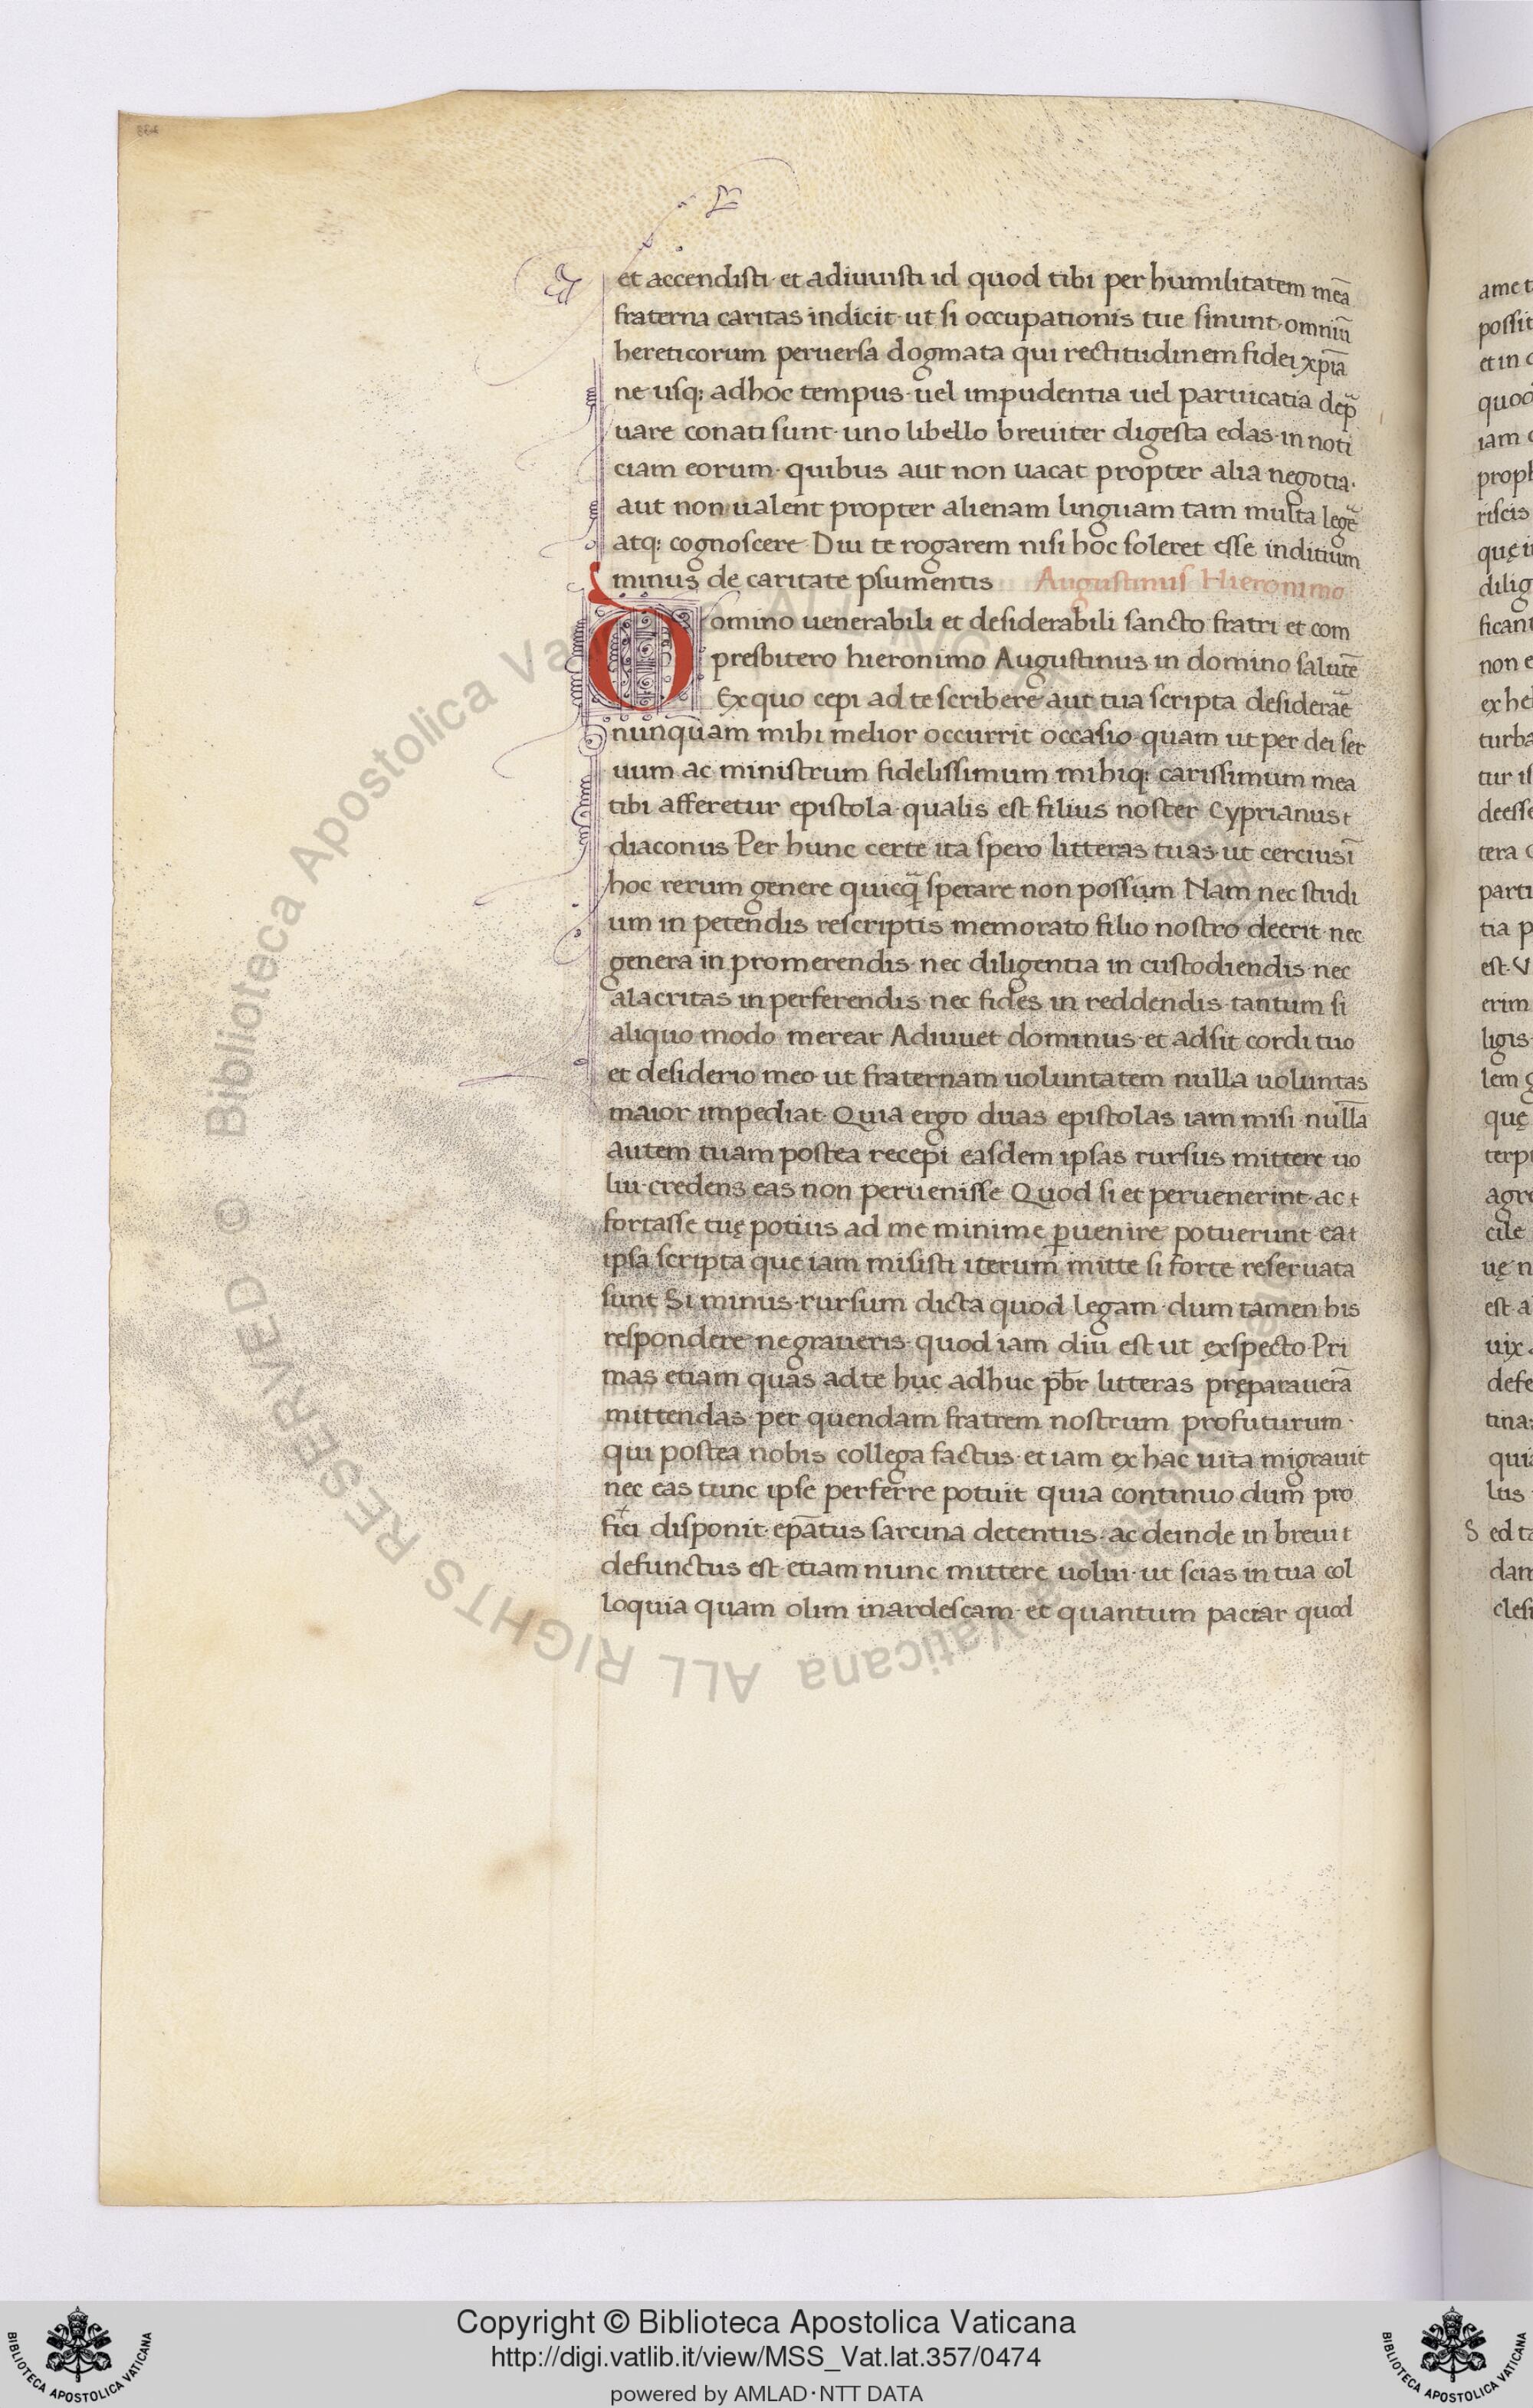 et accendisti· et adiuuisti id quod tibi per humilitatem meā
fraterna caritas indicit· ut si occupationis tue sinunt· omniū
hereticorum peruersa dogmata qui rectitudinem fidei xp̄ia
ne usq; adhoc tempus· uel impudentia uel paruicatia dep̄
uare conati sunt· uno libello breuiter digesta edas· in noti
ciam eorum· quibus aut non uacat propter alia negotia·
aut non ualent propter alienam linguam tam multa legē
atq; cognoscere· Diu te rogarem nisi hoc soleret esse inditium
minus de caritate psumentis Augustinus Hieronimo
Domino uenerabili et desiderabili sancto fratri et com
presbitero hieronimo Augustinus in domino salutē
Ex quo cepi ad te scribere aut tua scripta desiderāe
nunquam mihi melior occurrit occasio· quam ut per dei ser
uum ac ministrum fidelissimum mihiq; carissimum mea
tibi afferetur epistola· qualis est filius noster Cyprianus
diaconus Per hunc certe ita spero litteras tuas· ut cercius ī
hoc rerum genere quicq̄ sperare non possum Nam nec studi
um in petendis rescriptis memorato filio nostro deerit· nec
genera in promerendis· nec diligentia in custodiendis· nec
alacritas in perferendis· nec fides in reddendis· tantum si
aliquo modo merear Adiuuet dominus· et adsit cordi tuo
et desiderio meo· ut fraternam uoluntatem nulla uoluntas
maior impediat· Quia ergo duas epistolas iam misi· nullā
autem tuam postea recepi easdem ipsas rursus mittere uo
lui· credens eas non peruenisse Quod si et peruenerint· ac
fortasse tuę potius ad me minime puenire potuerunt· ea
ipsa scripta que iam misisti iterum mitte si forte reseruata
sunt Si minus· rursum dicta quod legam· dum tamen his
respondere ne graueris· quod iam diu est ut exspecto· Pri
mas etiam quas ad te huc adhuc pb̄r litteras pręparauerā
mittendas· per quendam fratrem nostrum profuturum·
qui postea nobis collega factus· et iam ex hac uita migrauit
nec eas tunc ipse perferre potuit quia continuo dum pro
fici disponit· ep̄atus sarcina detentus· ac deinde in breui
defunctus est· etiam nunc mittere uolui· ut scias in tua col
loquia quam olim inardescam· et quantum paciar quod
Copyright © Biblioteca Apostolica Vaticana
http://digi.vatlib.it/view/MSS_Vat.lat.357/0474
powered by AMLAD·NTT DATA
BIBLIOTECA APOSTOLICA VATICANA
BIBLIOTECA APOSTOLICA VATICANA